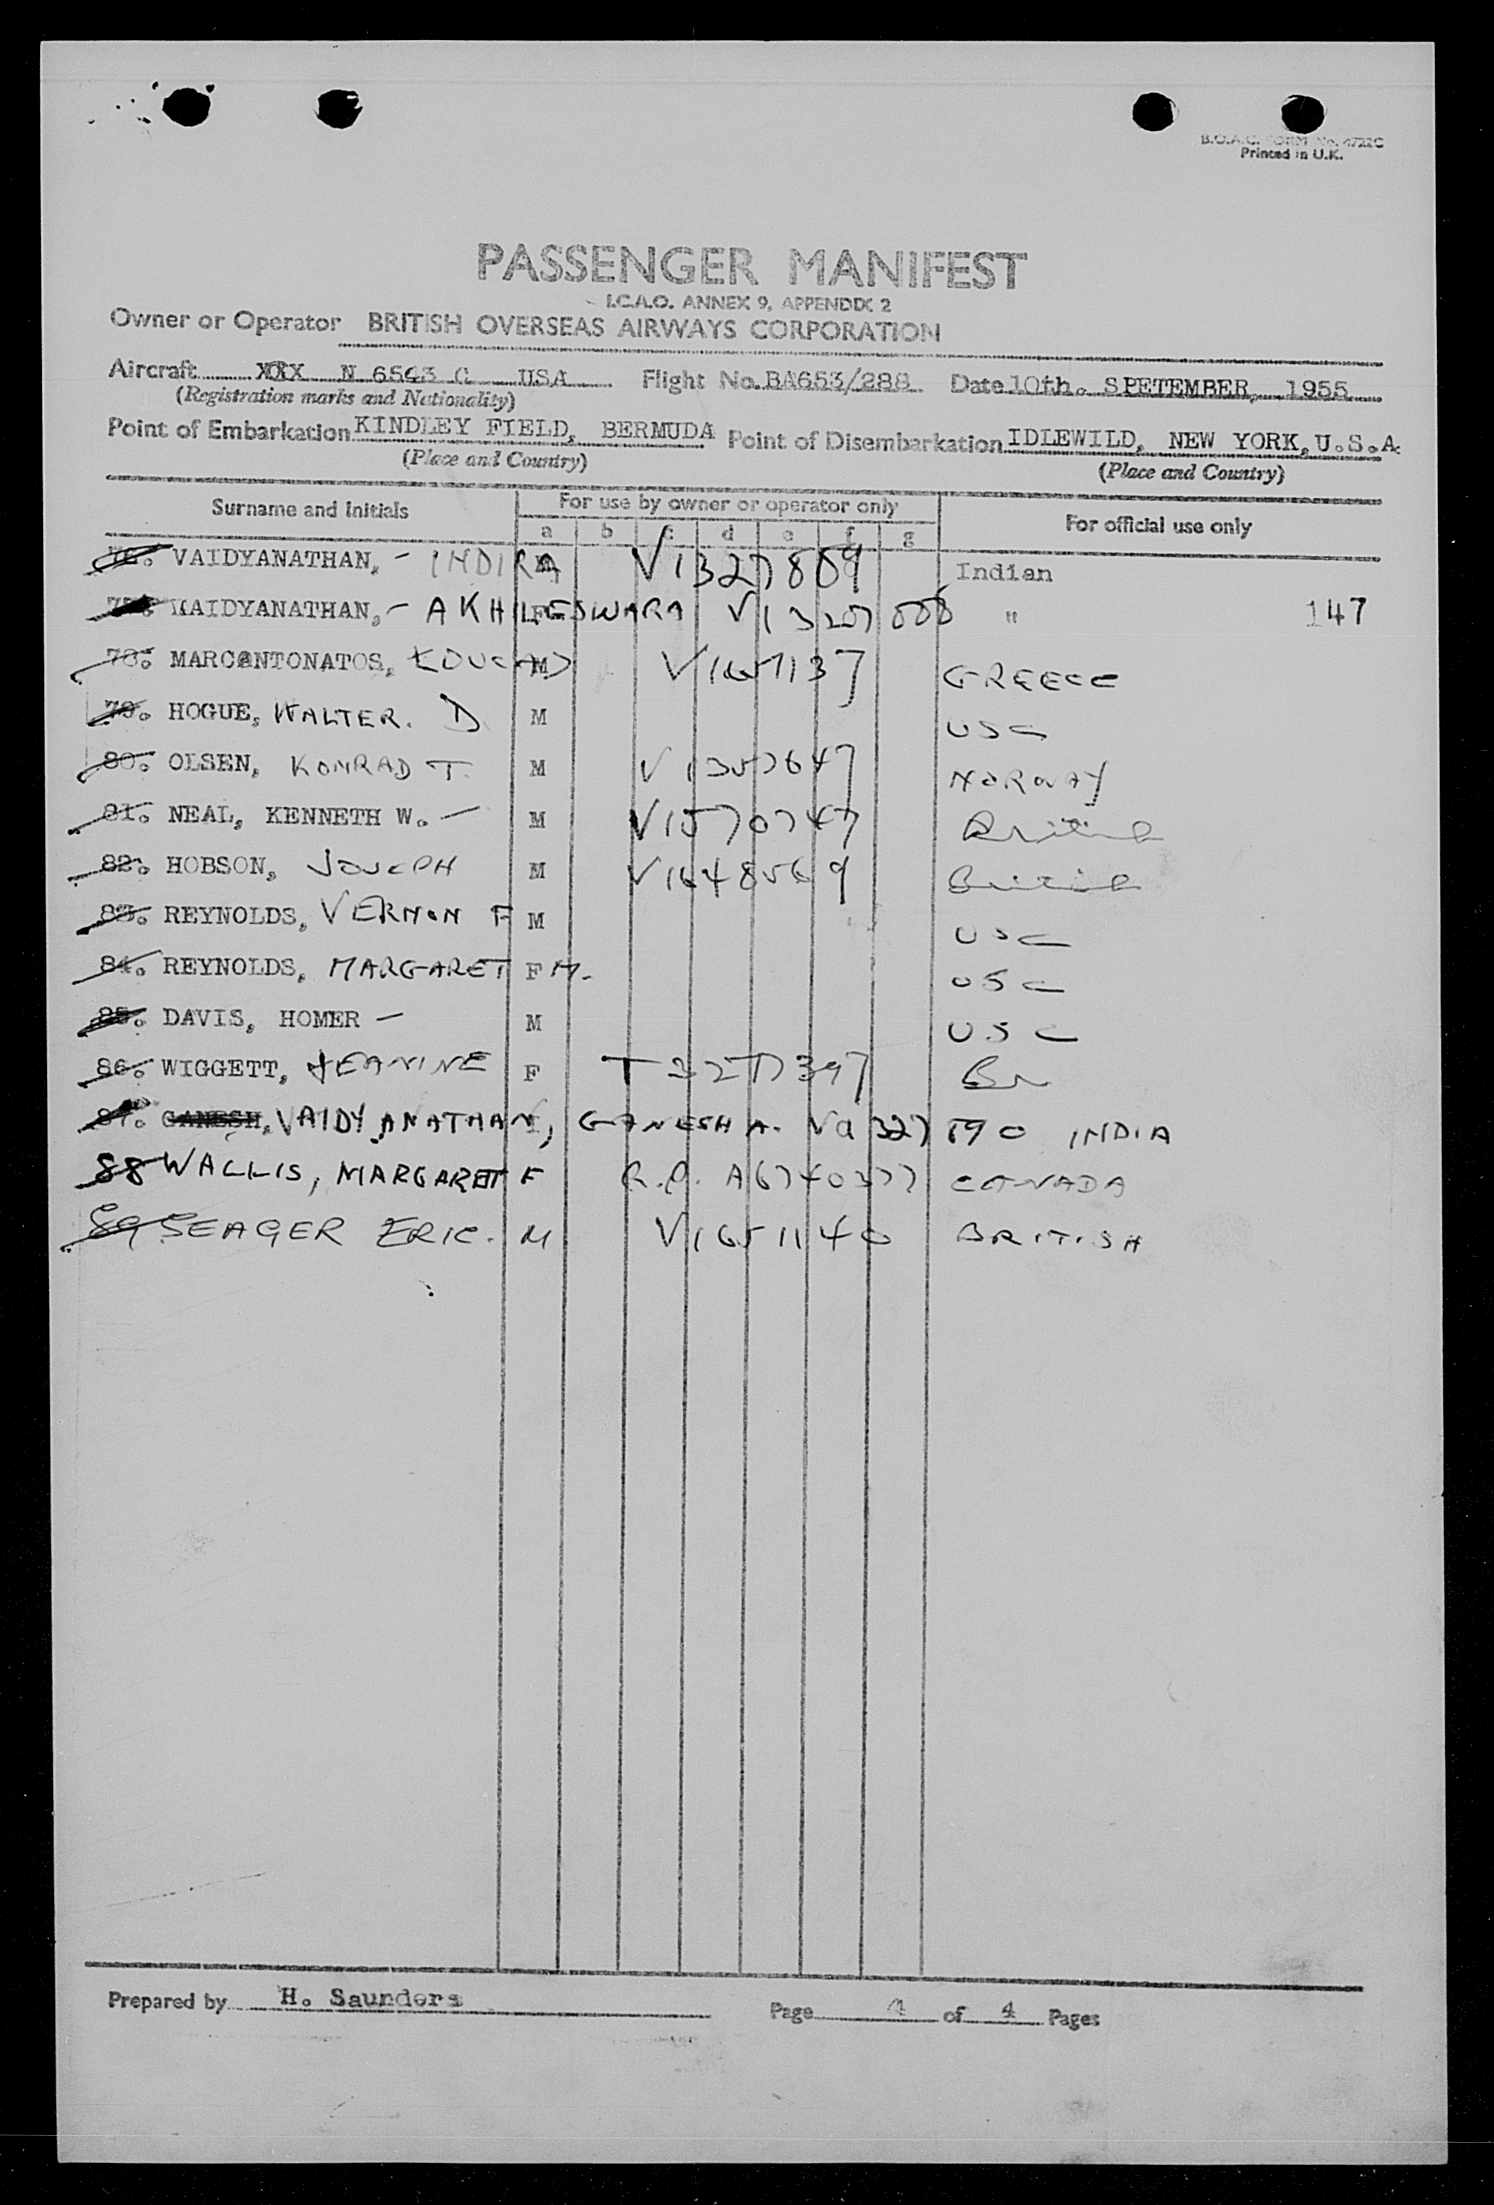 B.O.A.C. FORM No. 4722C
Printed in U.K.
PASSENGER MANIFEST
I.C.A.O. ANNEX 9, APPENDIX 2
Owner or Operator BRITISH OVERSEAS AIRWAYS CORPORATION
Aircraft XXX N 6543 C USA Flight No. BA653/288 Date 10th. SPETEMBER, 1955
(Registration marks and Nationality)
Point of Embarkation KINDLEY FIELD, BERMUDA Point of Disembarkation IDLEWILD, NEW YORK, U.S.A.
(Place and Country) (Place and Country)
Surname and Initials For use by owner or operator only For official use only
a b c d e f g
76. VAIDYANATHAN, - INDIRA V1327889 Indian
77. MAIDYANATHAN, - AKHILESWARA F V1327888 " 147
78. MARCANTONATOS, M V1651137 GREECE
79. HOGUE, WALTER. D M USC
80. OLSEN, KONRAD T. M V1357647 NORWAY
81. NEAL, KENNETH W. - M V1570747 British
82. HOBSON, JOSEPH M V1648569 British
83. REYNOLDS, VERNON F M USC
84. REYNOLDS, MARGARET F M. USC
85. DAVIS, HOMER - M USC
86. WIGGETT, JEANINE F Br
87. GANESH, VAIDYANATHAN, GANESH A. 890 INDIA
88 WALLIS, MARGARET F R.P. A6740377 CANADA
89 SEAGER ERIC. M V1651140 BRITISH
Prepared by H. Saunders Page 4 of 4 Pages